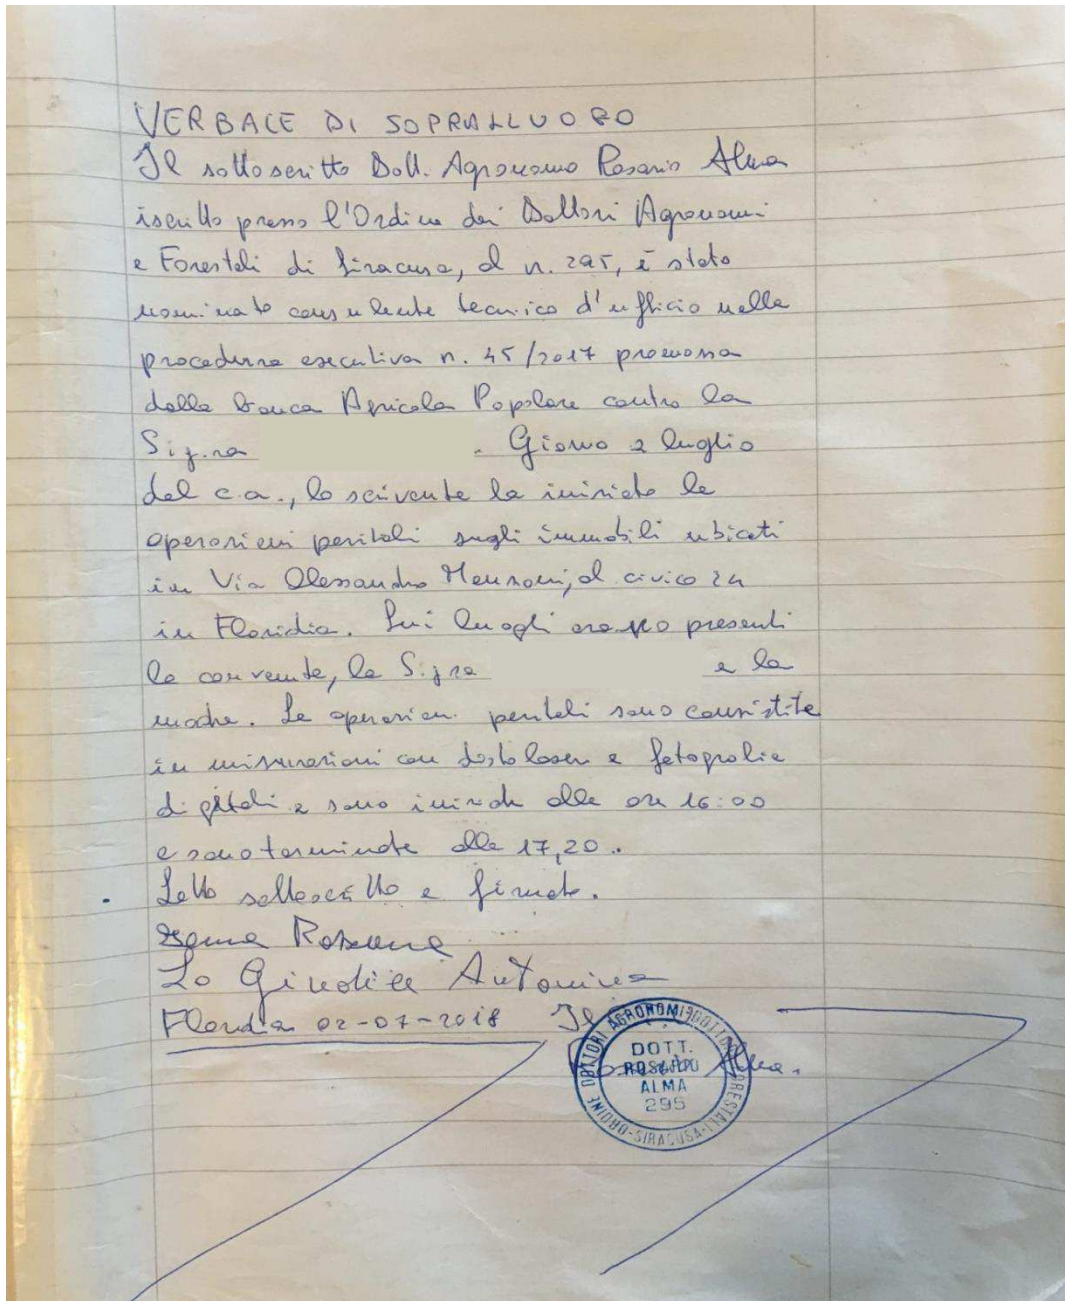 VERBALE DI SOPRALLUOGO
Il sottoscritto Dott. Agronomo Rosario Alma
iscritto presso l'Ordine dei Dottori Agronomi
e Forestali di Siracusa, al n. 295, è stato
nominato consulente tecnico d'ufficio nella
procedura esecutiva n. 45/2017 promossa
dalla banca Agricola Popolare contro la
Sig.ra . Giorno 2 luglio
del c.a., lo scrivente ha iniziato le
operazioni peritali sugli immobili ubicati
in Via Alessandro Manzoni, al civico 24
in Floridia. Sui luoghi erano presenti
la convenuta, la Sig.ra e la
madre. Le operazioni peritali sono consistite
in misurazioni con disto laser e fotografie
digitali e sono iniziate alle ore 16:00
e sono terminate alle 17,20.
Letto sottoscritto e firmato.
Lo Giudice Antonina
Floridia 02-07-2018 Il
Alma
ORDINE DOTTORI AGRONOMI DOTTORI FORESTALI
SIRACUSA
DOTT.
ROSARIO
ALMA
295